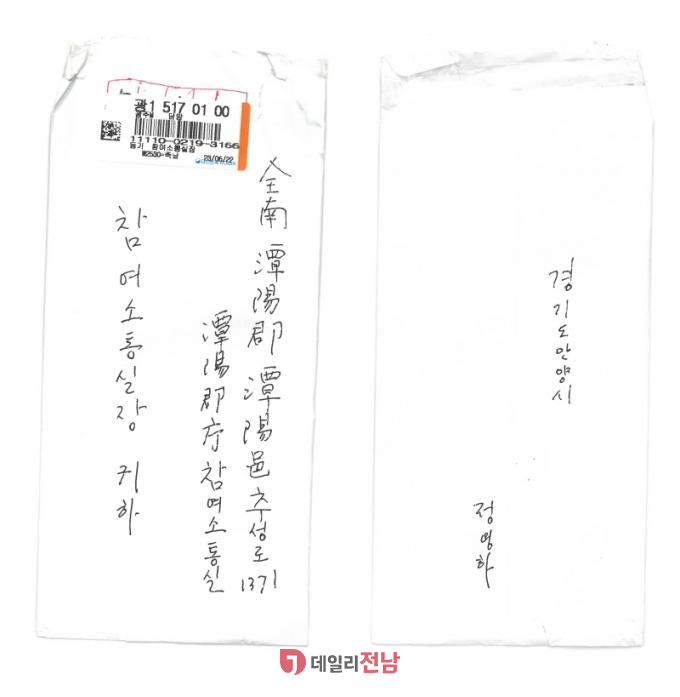 광1 517 01 00
광주M 담양
11110-0219-3166
등기 참여소통실장
M2530-축남
23/06/22
全南 潭陽郡 潭陽邑 추성로 1371
潭陽郡庁 참여소통실
참여소통실장 귀하
경기도안양시
정영하
데일리전남